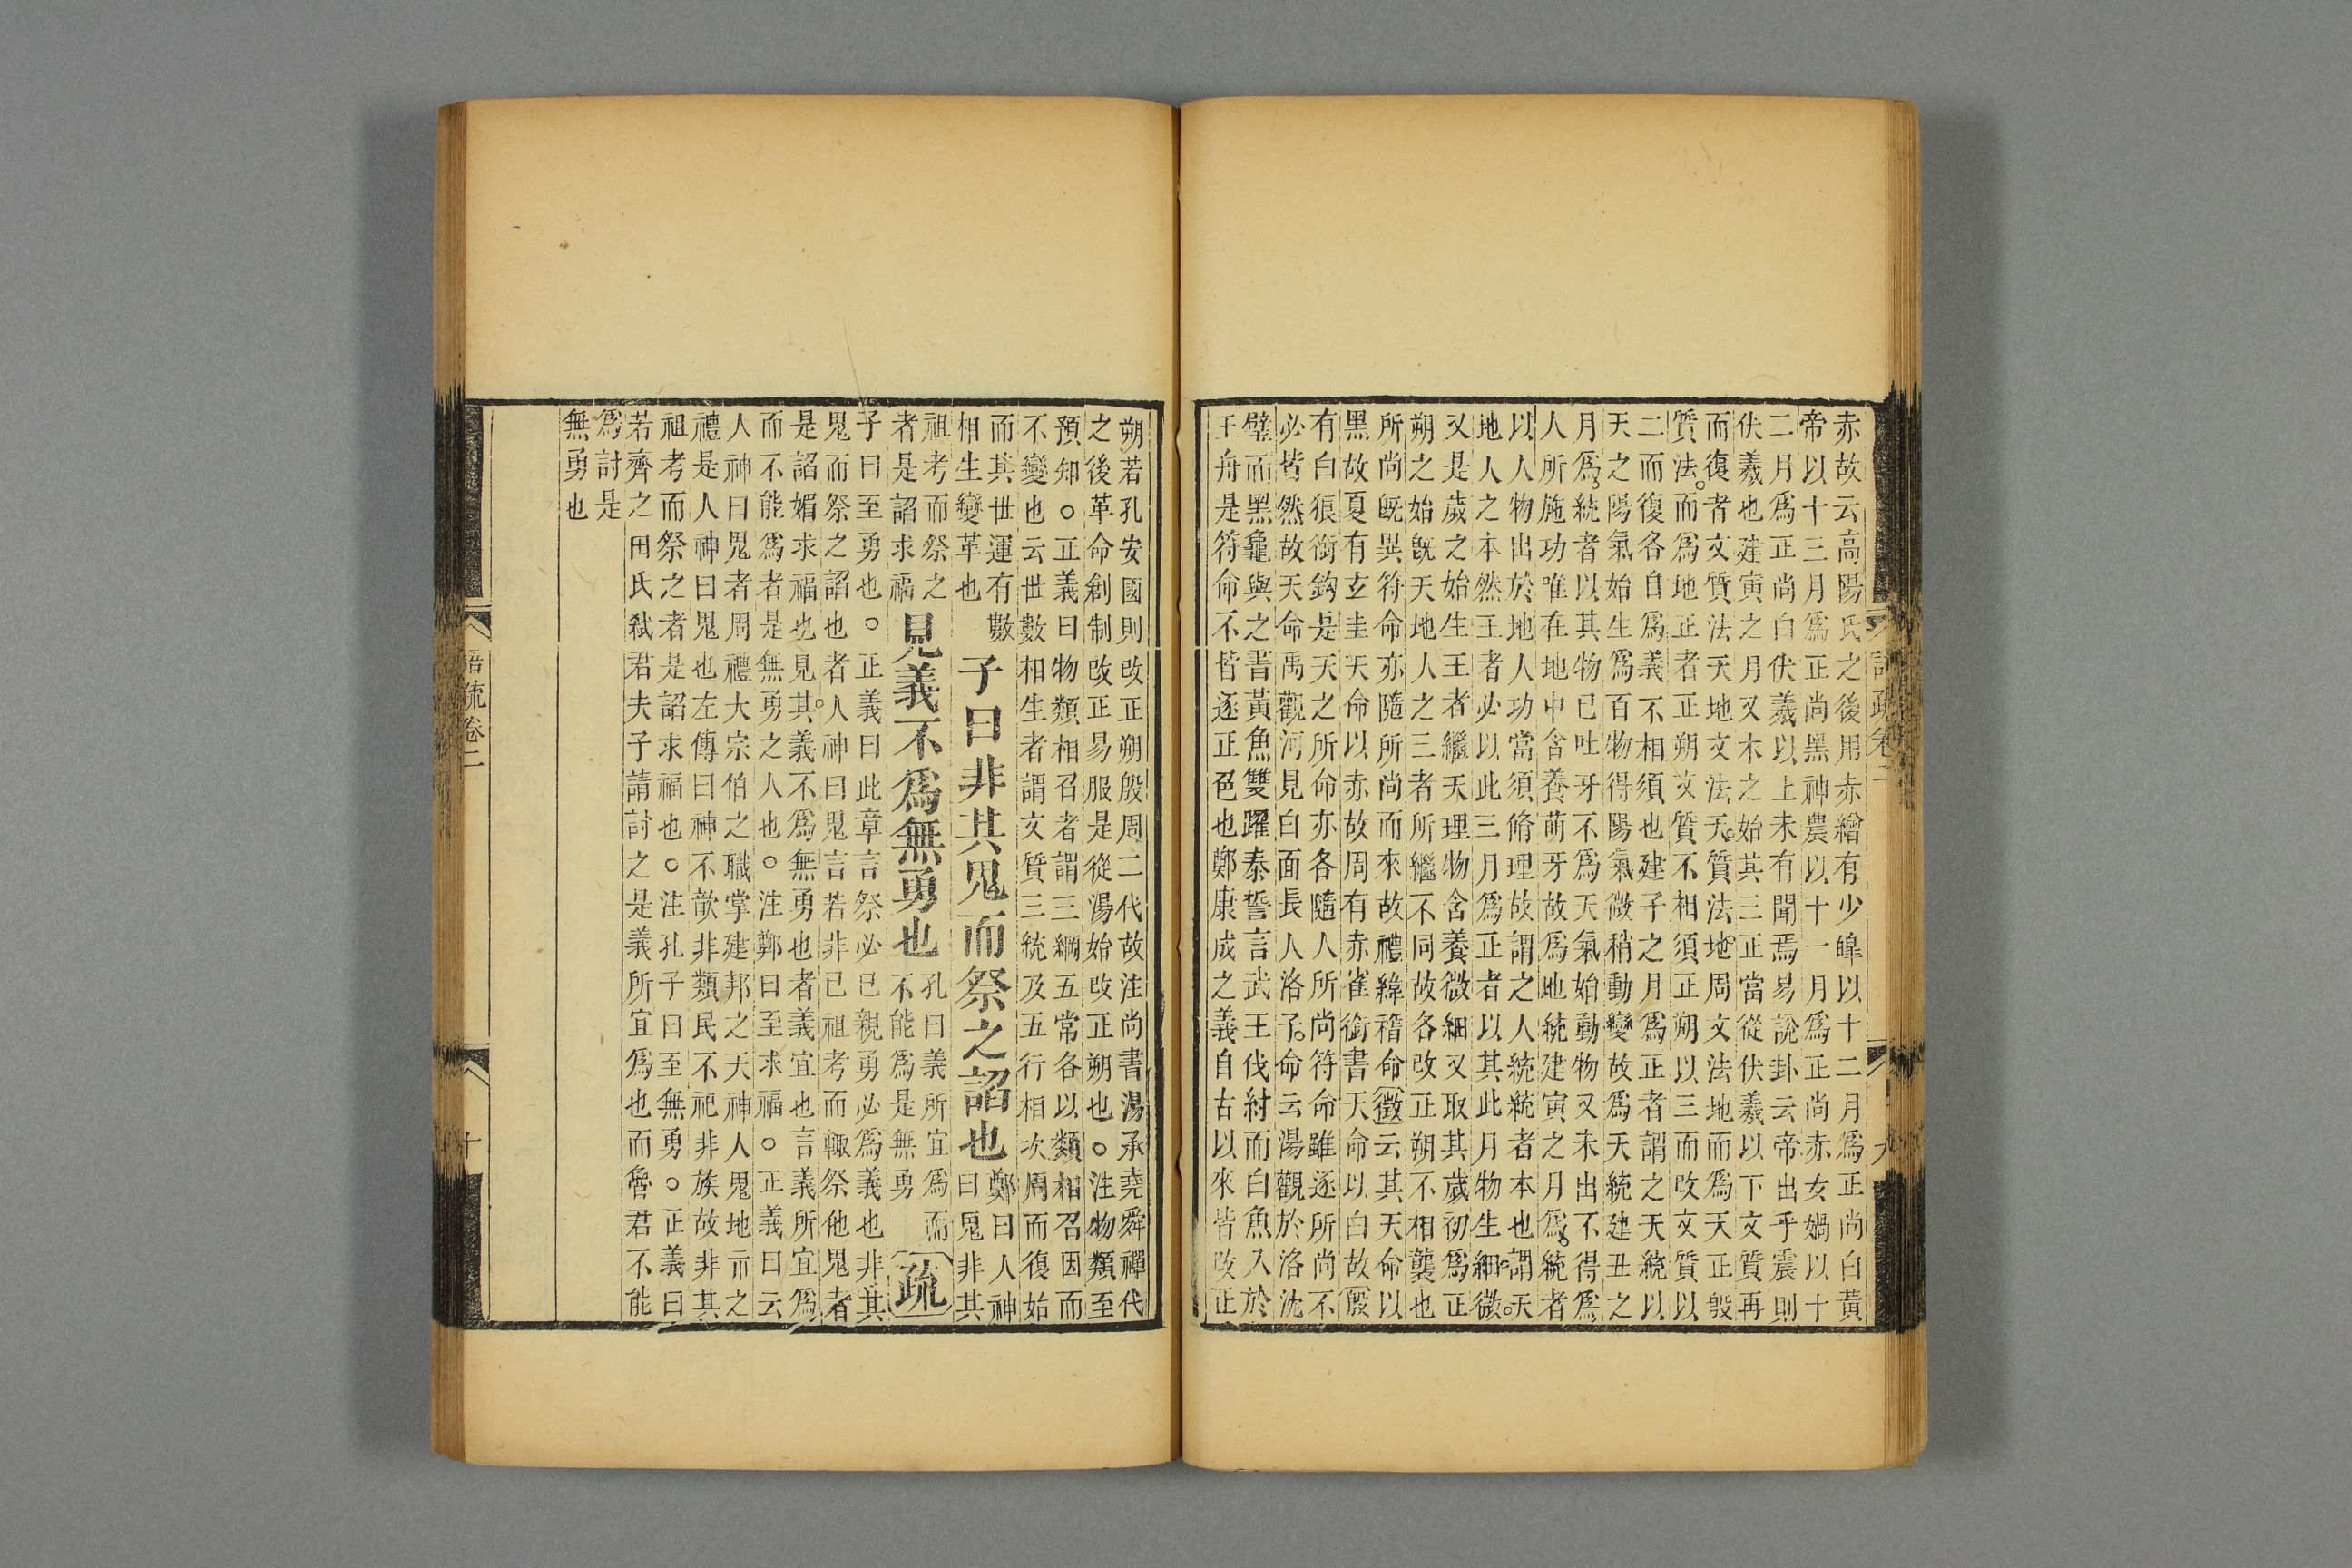 赤故云高陽氏之後用赤繒有少皞以十二月爲正尚白黃
帝以十三月爲正尚黑神農以十一月爲正尚赤女媧以十
二月爲正尚白伏羲以上未有聞焉易說卦云帝出乎震則
伏羲也建寅之月又木之始其三正當從伏羲以下文質再
而復者文質法天地文法天質法地周文法地而爲天正殷
質法而爲地正者正朔文質不相須正朔以三而改文質以
二而復各自爲義不相須也建子之月爲正者謂之天統以
天之陽氣始生爲百物得陽氣微稍動變故爲天統建丑之
月爲統者以其物已吐牙不爲天氣始動物又未出不得爲
人所施功唯在地中含養萌牙故爲地統建寅之月爲統者
以人物出於地人功當須脩理故謂之人統統者本也謂天
地人之本然王者必以此三月爲正者以其此月物生細微
又是歲之始生王者繼天理物含養微細又取其歲初爲正
朔之始既天地人之三者所繼不同故各改正朔不相襲也
所尚既異符命亦隨所尚而來故禮緯稽命徵云其天命以
黑故夏有玄圭天命以赤故周有赤雀銜書天命以白故殷
有白狼銜鉤是天之所命亦各隨人所尚符命雖逐所尚不
必皆然故天命禹觀河見白面長人洛子命云湯觀於洛沈
璧而黑龜與之書黃魚雙躍泰誓言武王伐紂而白魚入於
王舟是符命不皆逐正色也鄭康成之義自古以來皆改正
朔若孔安國則改正朔殷周二代故注尚書湯承堯舜禪代
之後革命創制改正易服是從湯始改正朔也○注物類至
預知○正義曰物類相召者謂三綱五常各以類相召因而
不變也云世數相生者謂文質三統及五行相次周而復始
而其世運有數
相生變革也
子曰非其鬼而祭之諂也
鄭曰人神
曰鬼非其
祖考而祭之
者是諂求福
見義不爲無勇也
孔曰義所宜爲而
不能爲是無勇
疏
子曰至勇也○正義曰此章言祭必已親勇必爲義也非其
鬼而祭之諂也者人神曰鬼言若非已祖考而輒祭他鬼者
是諂媚求福也見其義不爲無勇也者義宜也言義所宜爲
而不能爲者是無勇之人也○注鄭曰至求福○正義曰云
人神曰鬼者周禮大宗伯之職掌建邦之天神人鬼地示之
禮是人神曰鬼也左傳曰神不歆非類民不祀非族故非其
祖考而祭之者是諂求福也○注孔子曰至無勇○正義曰
若齊之田氏弒君夫子請討之是義所宜爲也而魯君不能
爲討是
無勇也
語疏卷二
十